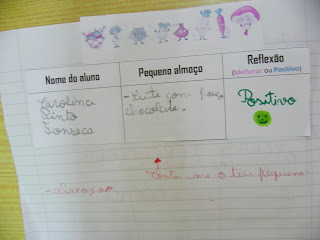 Nome do aluno
Pequeno almoço
Reflexão
(Melhorar ou Positivo)
Carolina
Pinto
Fonseca
- Leite com pouco
chocolate.
Positivo
Conta - me o teu pequeno
- almoço.